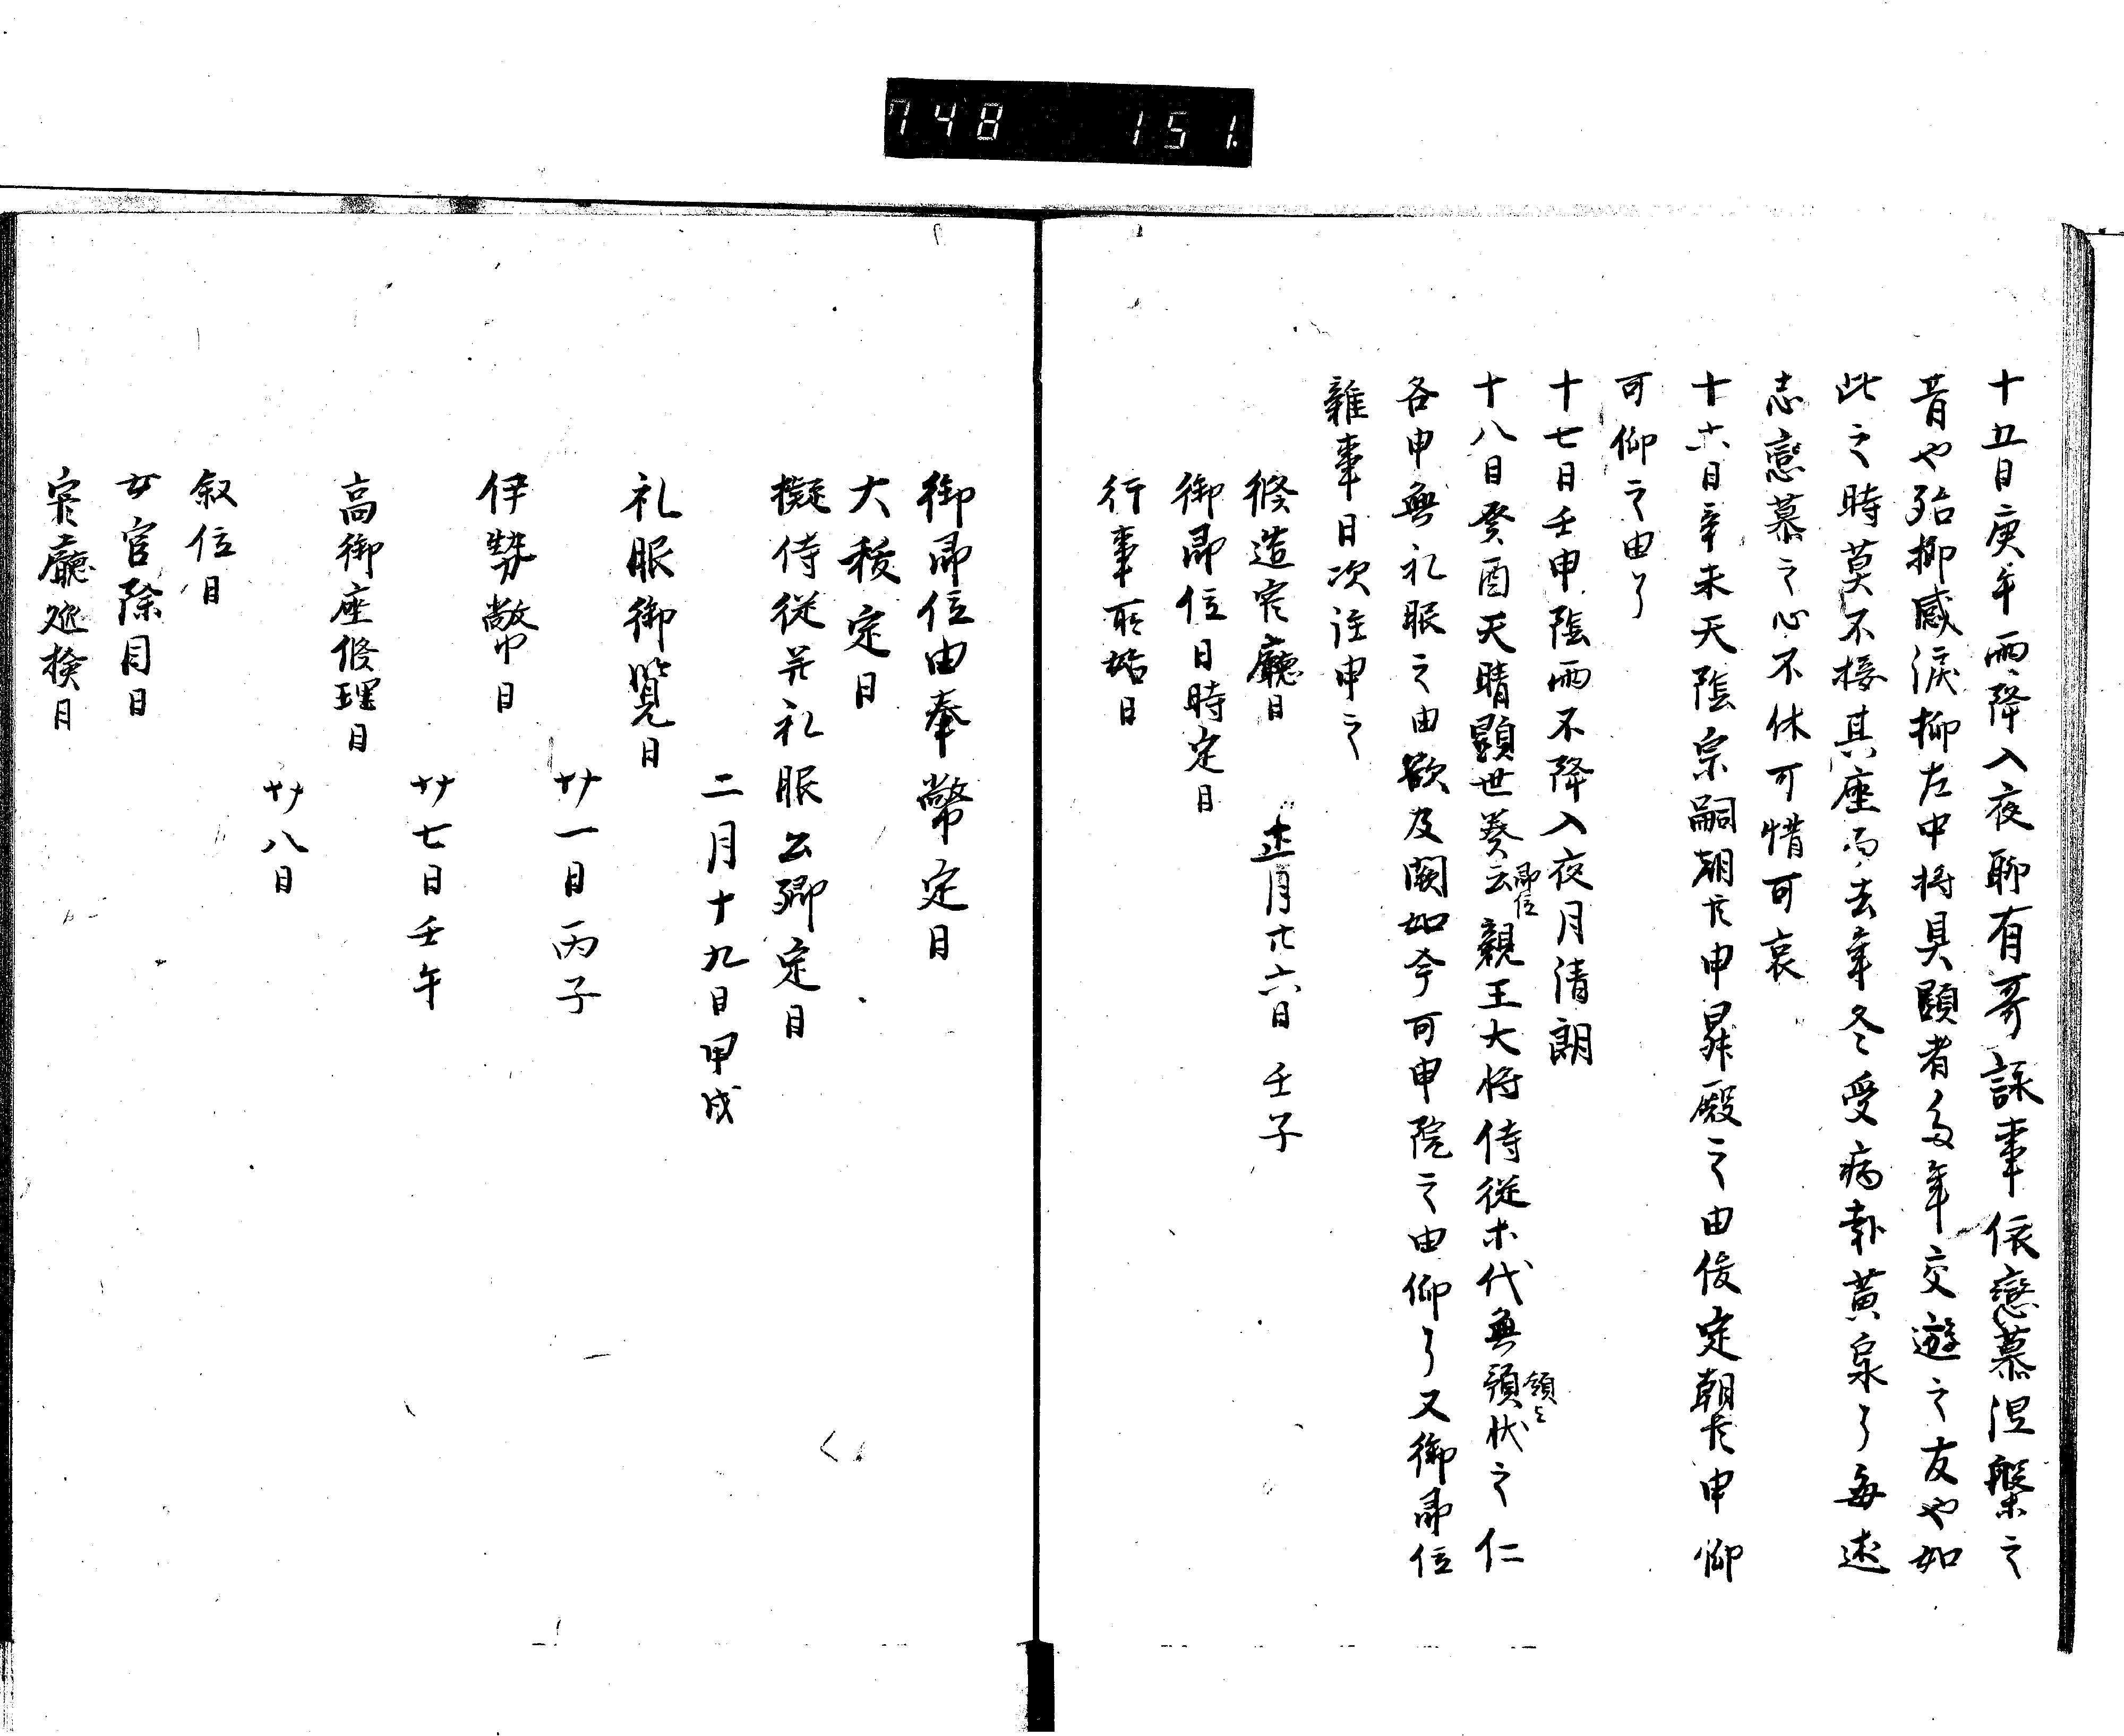 748 151.
十五日庚午雨降入夜聊有哥詠事依戀慕涅槃之
昔也殆抑感涙抑左中将具顕者多年交遊之友也如
此之時莫不接其座而去年冬受病赴黄泉了毎述
志戀慕之心不休可惜可哀
十六日辛未天陰宗嗣朝臣申昇殿之由俊定朝臣申仰
可仰之由了
十七日壬申陰雨不降入夜月清朗
十八日癸酉天晴顕世奏云即位親王大将侍従等代無領状之仁
領歟
各申無礼服之由欲及闕如今可申院之由仰了又御即位
雑事日次注申之
修造官廳日 正月廿六日 壬子
御即位日時定日
行事所始日
御即位由奉幣定日
大祓定日
擬侍従并礼服公卿定日
二月十九日甲戌
礼服御覧日
廿一日丙子
伊勢幣日
廿七日壬午
高御座修理日
廿八日
叙位日
女官除目日
官廳巡検日